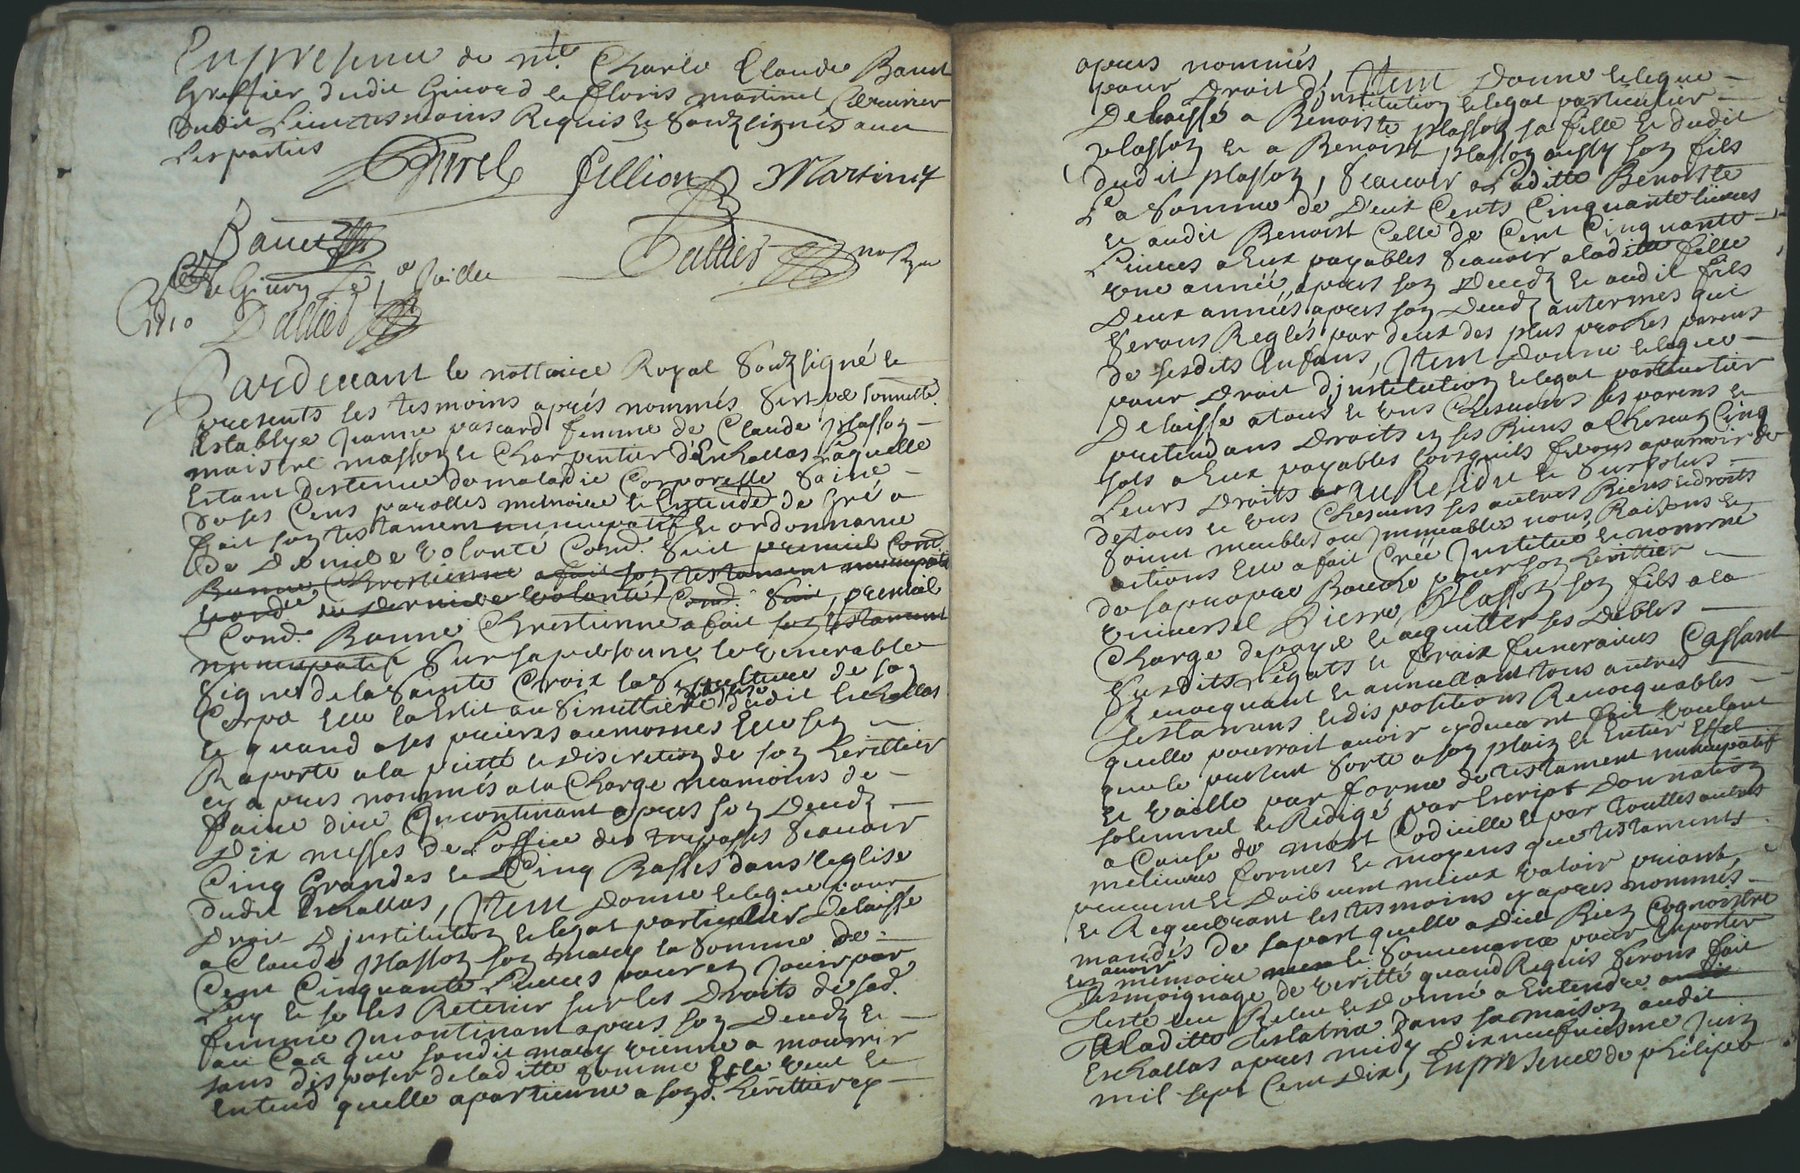 En presence de me. Charle Claude Banet
Greffier dudit Givord et Floris martinet
dudit Lieu tesmoins Requis et Soubzsignés avec
Les parties
Gillion Martinet
Banet
no Ryal
Par devant le nottaire Royal Soubzsigné et
presents les tesmoins aprés nommés S'est
Establye Jeanne pascard femme de Claude plasson
maistre masson et Charpentier d'Eschallas Laquelle
Estant destenue de maladie Corporelle Saine
de ses Cens parolles memoire et Entende. de Gré a
fait son testament nuncupatif et ordonnance
de Derniere volonté Comd. Suit premie. Comd.
Bonne Chrestienne a fait son testament nuncupatif
et ordce. de derniere volonté Comd. Suit, premie.
Comd. Bonne Chrestienne a fait son testament
nuncupatif Sur sa personne le venerable
Signe de la Sainte Croix la Sepulture de son
Corps Elle la Eslit au Simittiere dudit Eschallas
et quand a ses prieres aumosnes Elle s'en
Raporte a la pietté et discretion de son herittier
cy apres nommés a la Charge neamoins de
faire dire Incontinant apres son Decedz
Dix messes de L'office des trepassés Scavoir
Cinq Grandes et Cinq Basses dans l'eglise
dudit Eschallas, Item Donne et legue Pour
Droit D'institution et legat particulier Delaisse
a Claude plasson son mary la Somme de
Cent Cinquante Livres pour en Jouir par
Luy et se les Retenir sur les Droits de sad.
femme Incontinant apres son Decedz et
au Cas que sondit mary vienne a mourrir
sans disposer de laditte somme Elle veut et
Entend quelle apartienne a sond. herittier cy
apres nommés, Item Donne et legue
pour Droit D'institution et legat particulier
Delaissé a Benoiste plasson sa fille et dudit
plasson et a Benoist plasson aussy son fils
dudit plasson, Scavoir a Laditte Benoiste
La Somme de Deux Cents Cinquante livres
et audit Benoist Celle de Cent Cinquante
Livres a Eux payables Scavoir a ladite fille
une année apres son Decedz et audit fils
Deux années apres son Decedz au termes qui
Serons Reglés par deux des plus proches parens
de sesdits Enfans, Item Donne et legue
pour Droit D'institution et legat particulier
Delaisse a tous et uns Chescuns ses parens et
pretendans Droits en ses Biens a Chescun Cinq
Sols a Eux payables Lorsquils feront aparroir de
Leurs Droits et au Residu et Surplus
de tous et uns Chescuns ses autres Biens et droits
Soient meubles ou Immeubles noms Raisons et
actions Elle a fait Crée Institue et nommé
de sa propre Bouche pour son herittier
universel Pierre Plasson son fils a la
Charge de payé et acquitter ses Debtes
Susdits Legats et fraix funeraires Cassant
Revocquant et annullant tous autres
testamens et dispositions Revocquables
quelle pourrait avoir cy devant fait Voulant
que le present Sorte a son plain et Entier Effet
et vaille par forme de testament nuncupatif
solemnel et Redigé par Escript Donnation
a Cause de mort Codicille et par touttes autres
melieures formes et moyens que testaments
peuvent et doibvent mieux valoir priant
et Requierant les tesmoins cy apres nommés
mandés de sa part quelle a Dict Bien Cognoistre
En avoir memoire et Souvenance pour Raporter
Tesmoignage de veritté quand Requis Serons fait
Leste leu Releu et Donné a Entendre
A Laditte Testatrix dans sa maison audit
Eschallas apres midy Dixneufuiesme Juin
mil sept Cent dix, En presence de philipes